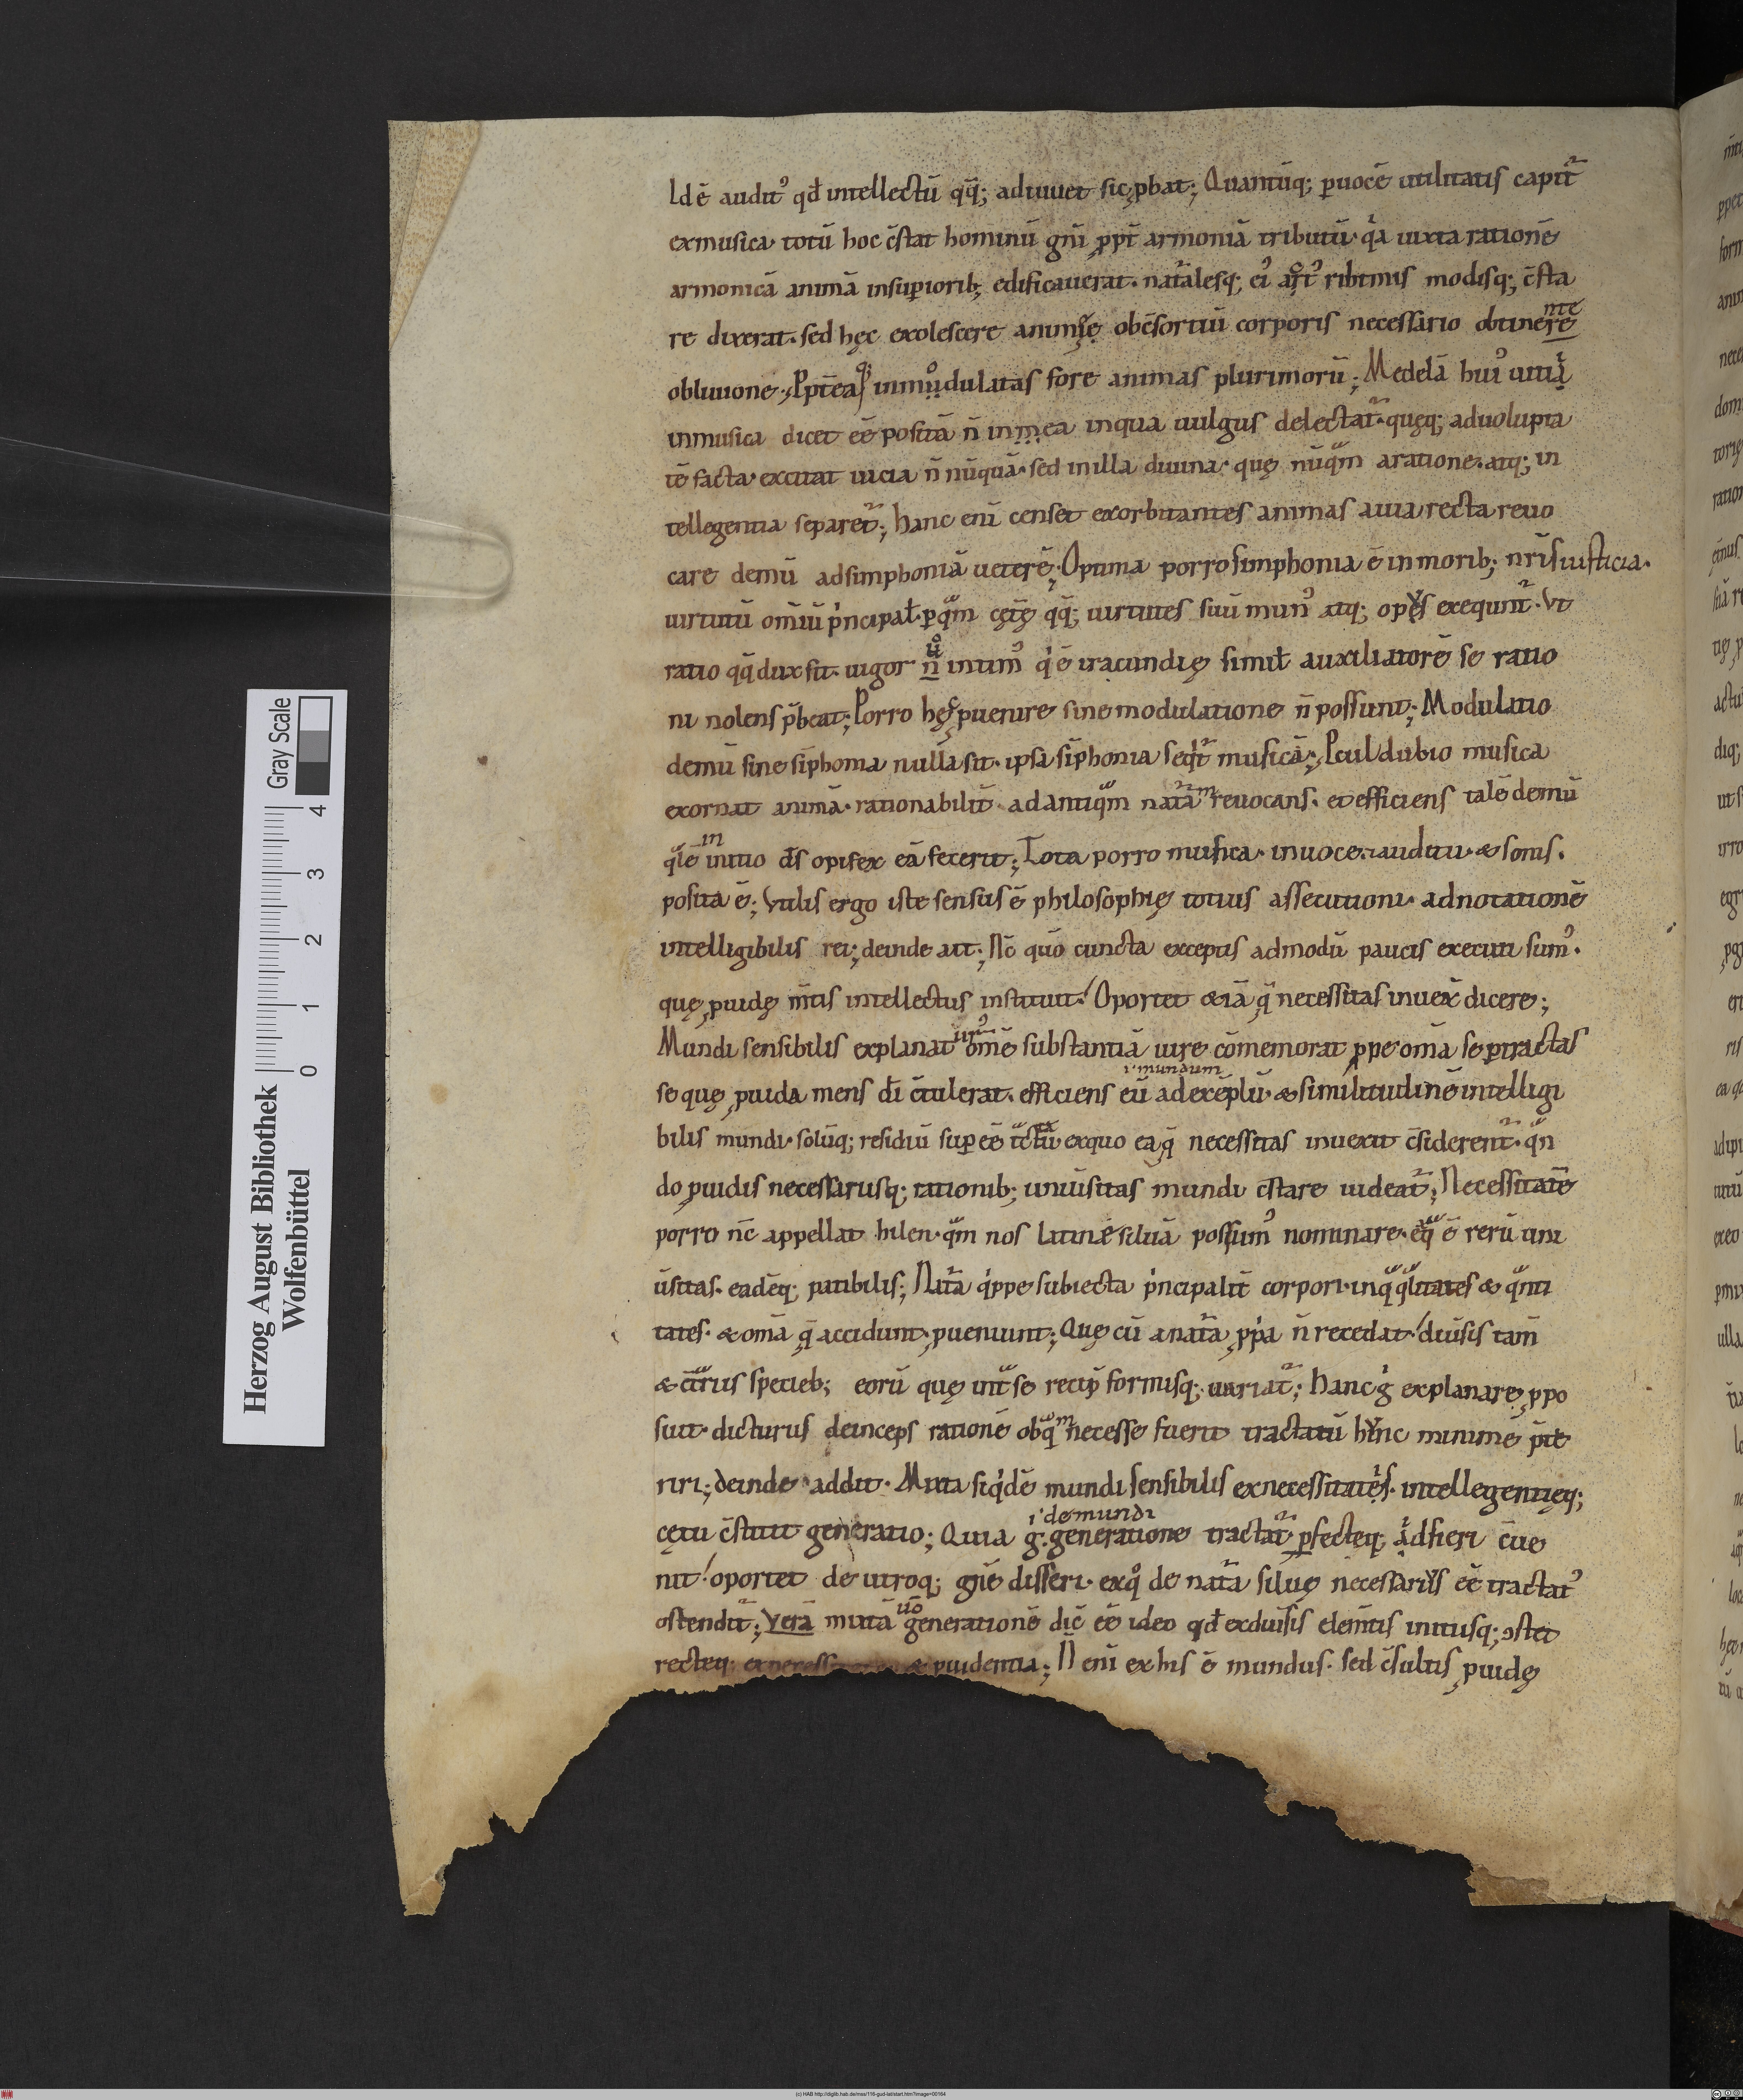 Idē audit᷒ qđ intellectū qq̄; adiuuet sic ꝓbat; Quantūq; ꝑuocē utilitatis capit᷑
exmusica totū hoc c̄stat hominū gn̄i ꝓpt̄ armoniā tributū· qͥa iuxta rationē
armonicā animā insuꝑiorib; edificauerat· nat᷑alesq; ei᷒ ribtmis modisq; c̄sta
re dixerat· sed hęc exolescere animę obc̄sortiū corporis necessario obtinere
nte
obliuione; Ppt̄ea inmodulatas fore animas plurimorū; Medelā hui᷒ uitii
inmusica dicet eē positā n̄ in ea inqua uulgus delectat᷑· quęq; aduolupta
tē facta· excitat uicia n̄ nūquā· sed inilla diuina· quę nūqͣm aratione· atq; in
tellegentia separet᷑; hanc eni censet exorbitantes animas auia recta reuo
care demū adsimphoniā ueterē; Optima porro simphonia ē in morib; nr̄is iusticia·
uirtutū om̄iū pͥncipal̵· ꝑqͣm cęt̄ę qq̄; uirtutes suū mun᷒ atq; opus exequnt᷑· Vt
ratio qq̄ dux sit· uigor n̄ intim᷒ qͥ ē iracundię simil̵ auxiliatorē se ratio
uͦ
ni nolens p̄beat; Porro hęc ꝓuenire sine modulatione n̄ possunt; Modulatio
demū sine sīphonia nulla sit· ipsa sīphonia seqͥt᷑ musicā; Pcul dubio musica
exornat animā· rationabilit̄ adantiqͣm nat᷑ā reuocans· et efficiens talē demū
qͣlē initio
in
d̄s opifex eā fecerit; Tota porro musica· inuoce· auditu· & sonis·
posita ē; Vtilis ergo iste sensus ē philosophię totius assecutioni· adnotationē
intelligibilis rei; deinde ait; Nc̄ quō cuncta exceptis admodū paucis executi sum᷒·
quę ꝓuidę m̄tis intellectus instituit! Oportet &iā q̄ necessitas inuex̄ dicere;
Mundi sensibilis explanat᷒ om̄ē substantiā iure cōmemorat ꝓpe om̄a se ꝑtractas
se quę ꝓuida mens d̄i c̄tulerat· efficiens eū adexēplū· & similitudinē intelligi
i· mundum
bilis mundi· solūq; residiū suꝑ eē exquo ea q̄ necessitas inuexit c̄siderent᷑· qͣn
do ꝓuidis necessariisq; rationib; uniūsitas mundi c̄stare uideat᷑; Necessitatē
porro nc̄ appellat hilen· qͣm nos latine siluā possum᷒ nominare· ē rerū uni
ūsitas· eadēq; patibilis; Nat᷑a qͥppe subiecta pͥncipalit̄ corpori· inqͣ qͣlitates & qͣnti
tates· & om̄a q̄ accidunt· ꝓueniunt; Quę cū anat᷑a ꝓpͥa n̄ recedat! diūsis tam̄
& c̄trͣriis specieb; eorū quę intͣ se recip̄ formisq; uariat᷑; hanc gͥ explanare ꝓpo
suit· dicturus deinceps rationē obqͣm necesse fuerit tractatū hunc minime p̄te
riri; deinde addit· Mixta siqͥdē mundi sensibilis exnecessitatis· intellegentięq;
cętu c̄stitit generatio; Quia g· generatione tractat᷑ ꝑfecteq; id fieri c̄ue
i· de mundi
nit! oportet de utroq; gn̄e disseri· exqͦ de nat᷑a siluę necessariis eē tractat᷒
ostendit᷑; Verā mixtā generationē dic̄ eē ideo qđ exdiūsis elem̄tis initiisq; ↄstet
uͦo
recteq; ex & ꝓuidentia; N̄ eni exhis ē mundus· sed c̄sultis ꝓuidę
Gray Scale
0 1 2 3 4
Herzog August Bibliothek
Wolfenbüttel
(c) HAB http://diglib.hab.de/mss/116-gud-lat/start.htm?image=00164